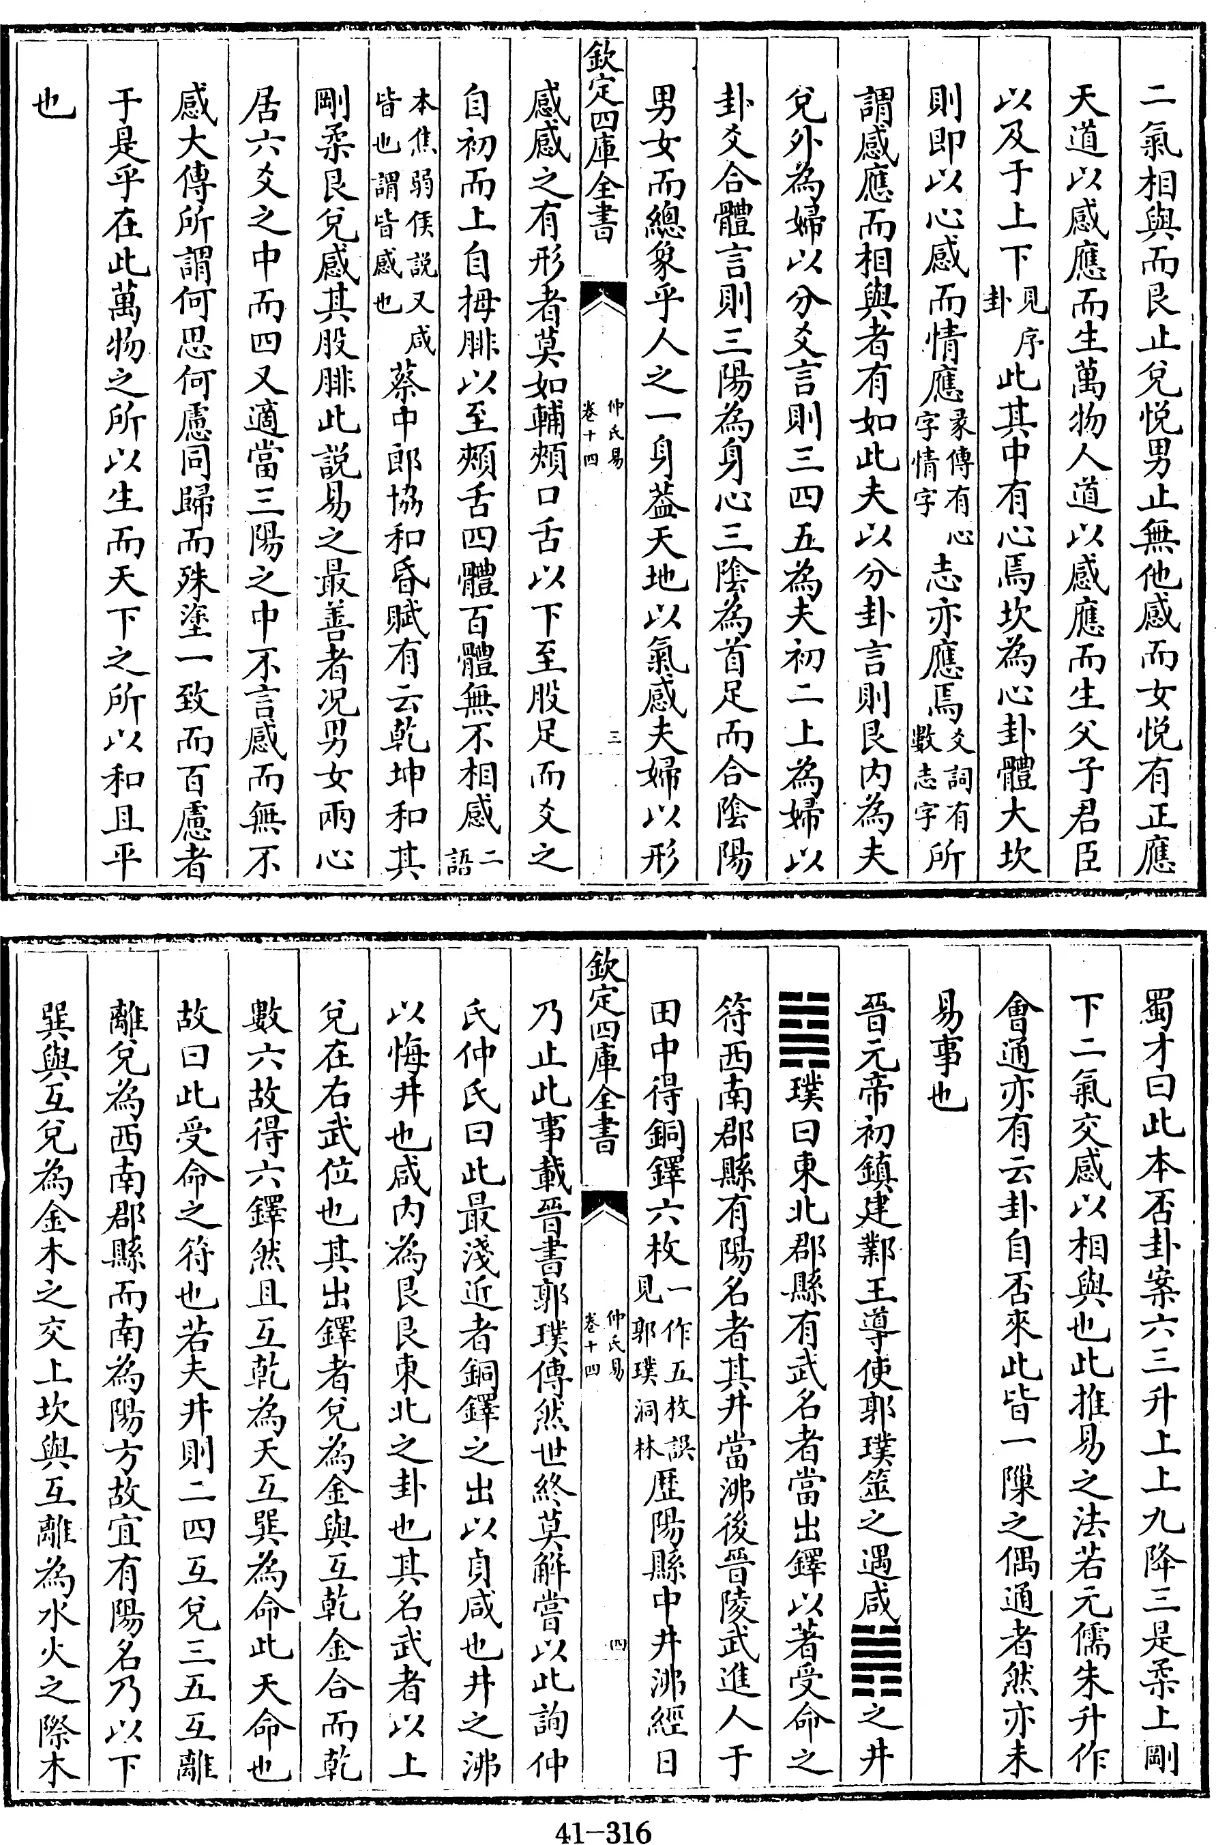 二氣相與而艮止兌悅男止無他感而女悅有正應
天道以感應而生萬物人道以感應而生父子君臣
以及于上下見序卦此其中有心焉坎為心卦體大坎
則即以心感而情應彖傳有心字情字志亦應焉爻詞有數志字所
謂感應而相與者有如此夫以分卦言則艮內為夫
兌外為婦以分爻言則三四五為夫初二上為婦以
卦爻合體言則三陽為身心三陰為首足而合陰陽
男女而總象乎人之一身葢天地以氣感夫婦以形
欽定四庫全書 仲氏易卷十四 三
感感之有形者莫如輔頰口舌以下至股足而爻之
自初而上自拇腓以至頰舌四體百體無不相感二語
本焦弱侯說又咸皆也謂皆感也蔡中郎協和昏賦有云乾坤和其
剛柔艮兌感其股腓此說易之最善者况男女兩心
居六爻之中而四又適當三陽之中不言感而無不
感大傳所謂何思何慮同歸而殊塗一致而百慮者
于是乎在此萬物之所以生而天下之所以和且平
也
蜀才曰此本否卦案六三升上上九降三是柔上剛
下二氣交感以相與也此推易之法若元儒朱升作
會通亦有云卦自否來此皆一隙之偶通者然亦未
易事也
晉元帝初鎮建鄴王導使郭璞筮之遇咸䷞之井
䷯璞曰東北郡縣有武名者當出鐸以著受命之
符西南郡縣有陽名者其井當沸後晉陵武進人于
田中得銅鐸六枚一作五枚誤見郭璞洞林歷陽縣中井沸經日
欽定四庫全書 仲氏易卷十四 四
乃止此事載晉書郭璞傳然世終莫解嘗以此詢仲
氏仲氏曰此最淺近者銅鐸之出以貞咸也井之沸
以悔井也咸內為艮艮東北之卦也其名武者以上
兌在右武位也其出鐸者兌為金與互乾金合而乾
數六故得六鐸然且互乾為天互巽為命此天命也
故曰此受命之符也若夫井則二四互兌三五互離
離兌為西南郡縣而南為陽方故宜有陽名乃以下
巽與互兌為金木之交上坎與互離為水火之際木
41-316